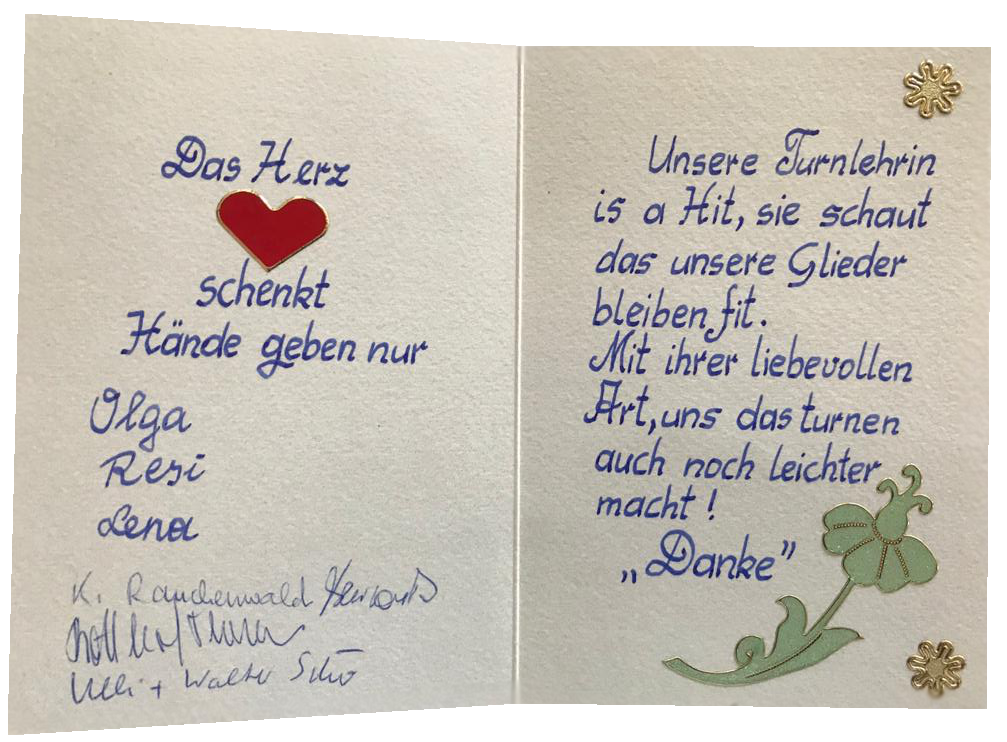 Das Herz
schenkt
Hände geben nur
Olga
Resi
Lena
K. Rauchenwald
Ulli + Walter
Unsere Turnlehrin
is a Hit, sie schaut
das unsere Glieder
bleiben fit.
Mit ihrer liebevollen
Art, uns das turnen
auch noch leichter
macht!
„Danke"